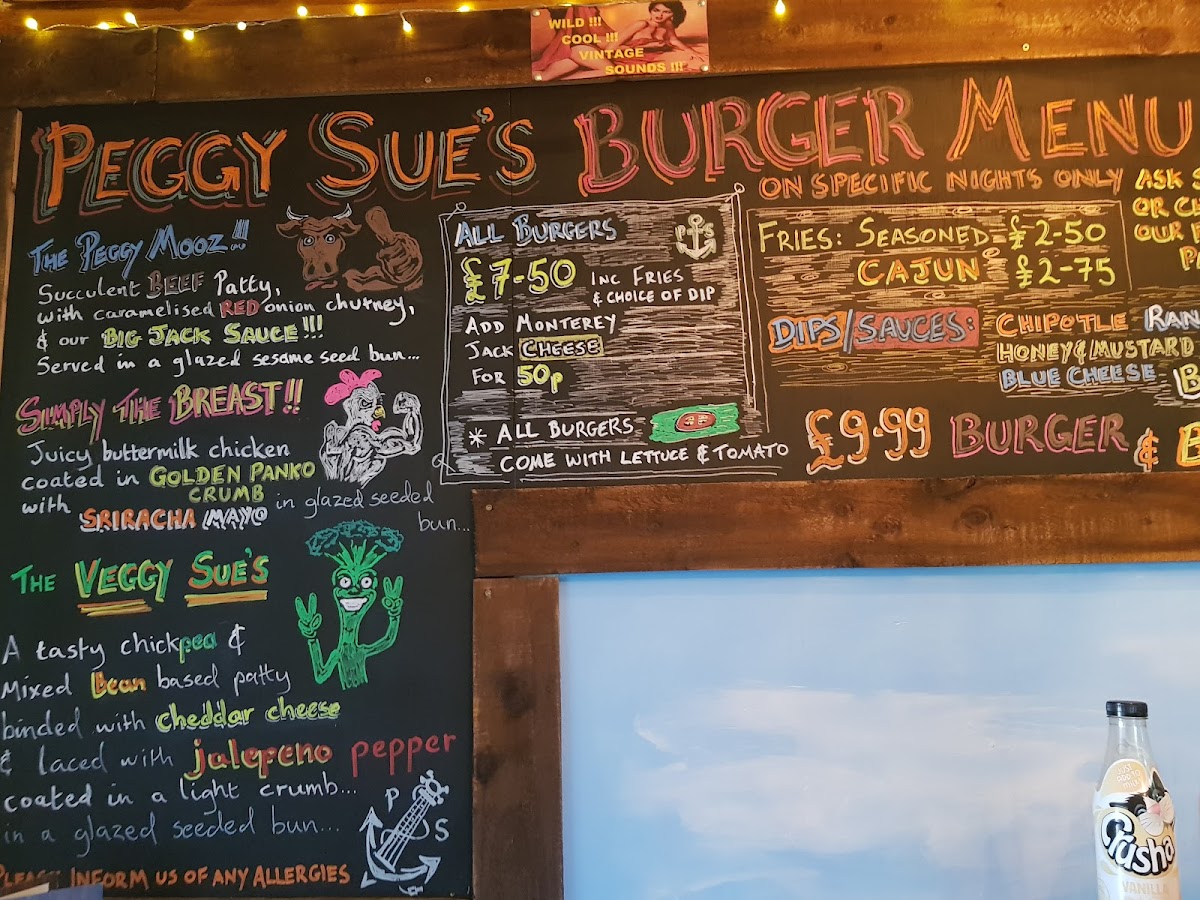 WILD !!!
COOL !!!
VINTAGE
SOUNDS !!!
PEGGY SUE'S BURGER MENU
ON SPECIFIC NIGHTS ONLY
ASK
OR
OUR
THE PEGGY MOOZ!!!
Succulent BEEF Patty,
with caramelised RED onion chutney,
& our BIG JACK SAUCE!!!
Served in a glazed sesame seed bun...
SIMPLY THE BREAST!!
Juicy buttermilk chicken
coated in GOLDEN PANKO
CRUMB
with SRIRACHA MAYO in glazed seeded
bun...
THE VEGGY SUE'S
A tasty chickpea &
Mixed Bean based patty
binded with cheddar cheese
& laced with jalepeno pepper
coated in a light crumb...
in a glazed seeded bun...
PLEASE INFORM US OF ANY ALLERGIES
P S
ALL BURGERS
P S
£7-50 INC FRIES
& CHOICE OF DIP
ADD MONTEREY
JACK CHEESE
FOR 50p
* ALL BURGERS
COME WITH LETTUCE & TOMATO
FRIES: SEASONED= £2-50
CAJUN = £2-75
DIPS/SAUCES: CHIPOTLE
HONEY & MUSTARD
BLUE CHEESE
£9-99 BURGER &
Crusha
VANILLA